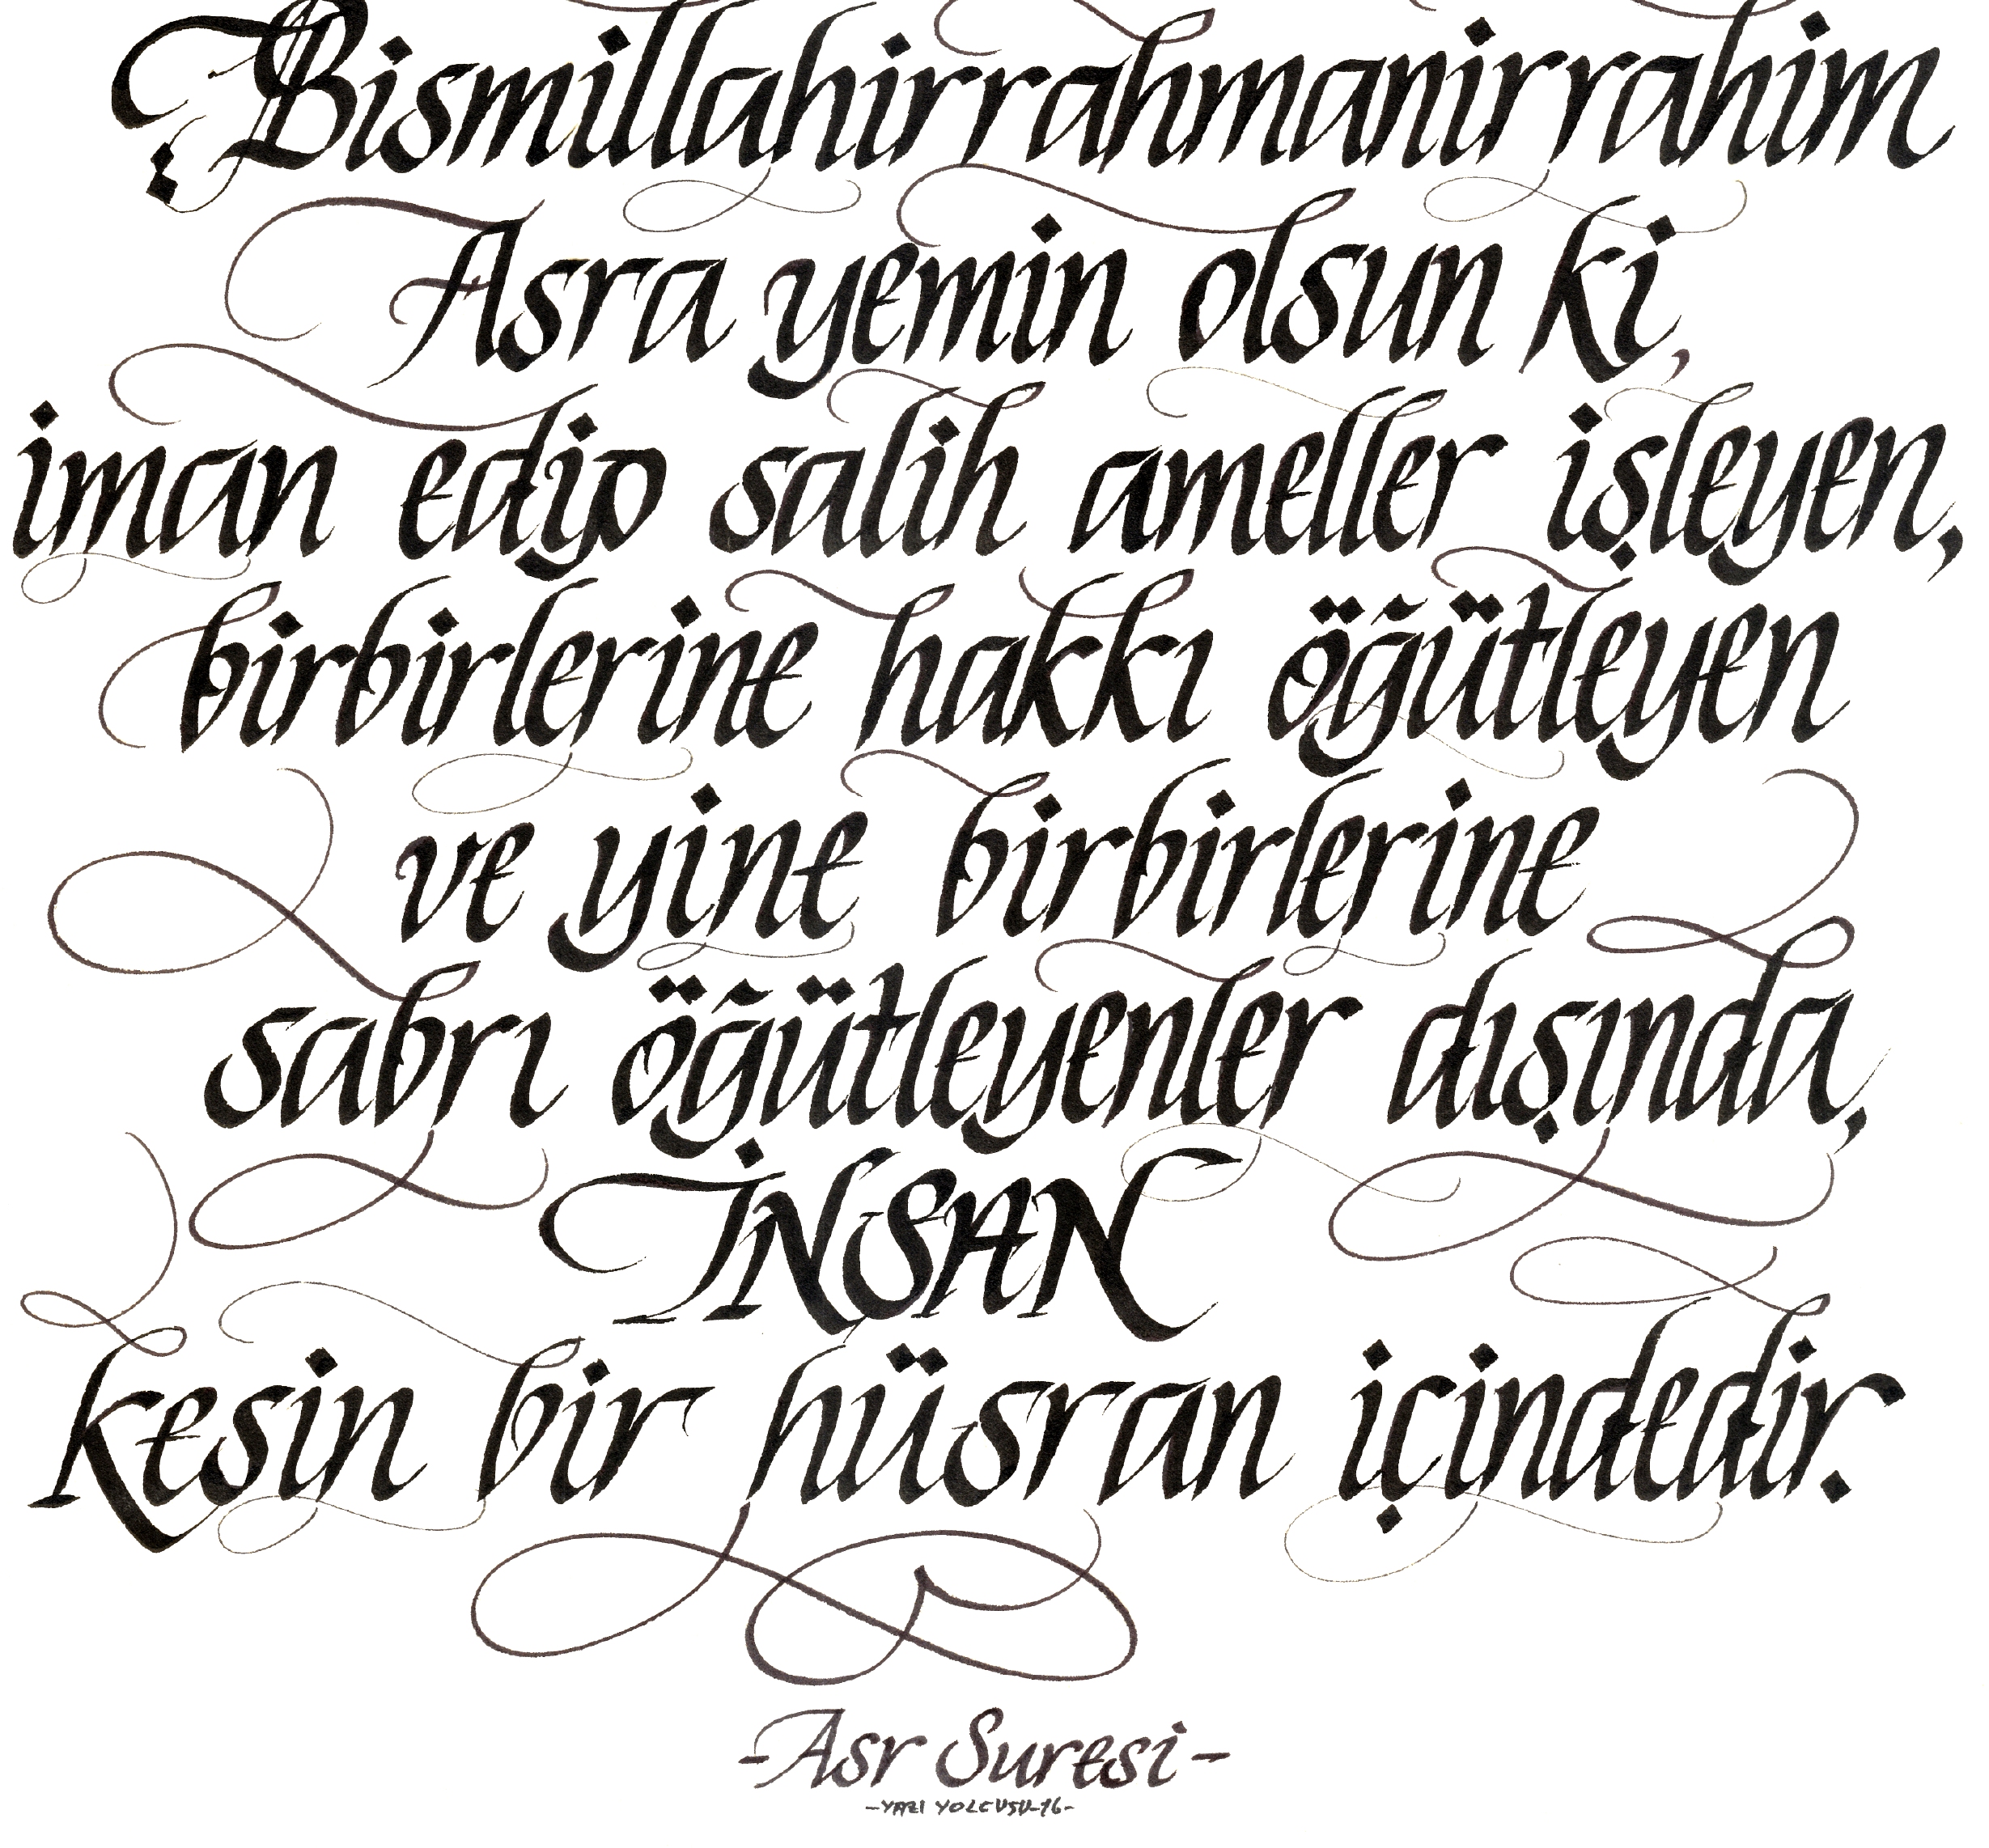 Bismillahirrahmanirrahim
Asra yemin olsun ki,
iman edip salih ameller işleyen,
birbirlerine hakkı öğütleyen
ve yine birbirlerine
sabrı öğütleyenler dışında,
İNSAN
kesin bir hüsran içindedir.
-Asr Suresi-
-YAZI YOLCUSU-16-